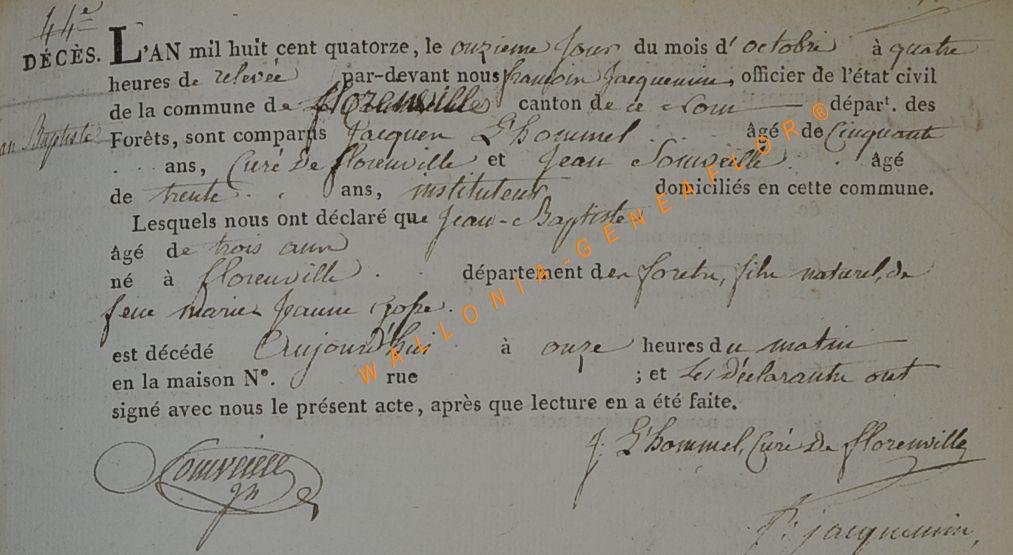 44e
DÉCÈS. L'AN mil huit cent quatorze, le onzieme jour du mois d'octobre à quatre
heures de relevée par-devant nous francoin Jacquemin, officier de l'état civil
de la commune de florenville canton de ce nom dépar<sup>t</sup>. des
Baptiste Forêts, sont comparus Jacques L'hommel . . âgé de Cinquante
. . ans, Curé de florenville et Jean Souveille . âgé
de trente . . ans, instituteur domiciliés en cette commune.
Lesquels nous ont déclaré que Jean-Baptiste
âgé de trois ans
né à florenville . . département des forets, fils naturel, de
feue marie Jeanne
est décédé Aujourd'hui à onze heures du matin
en la maison N°. rue ; et Les déclarants ont
signé avec nous le présent acte, après que lecture en a été faite.
J. L'hommel, Curé de florenville
Souveille
jacquemin,
WALLONIA-GENEAFLOR®